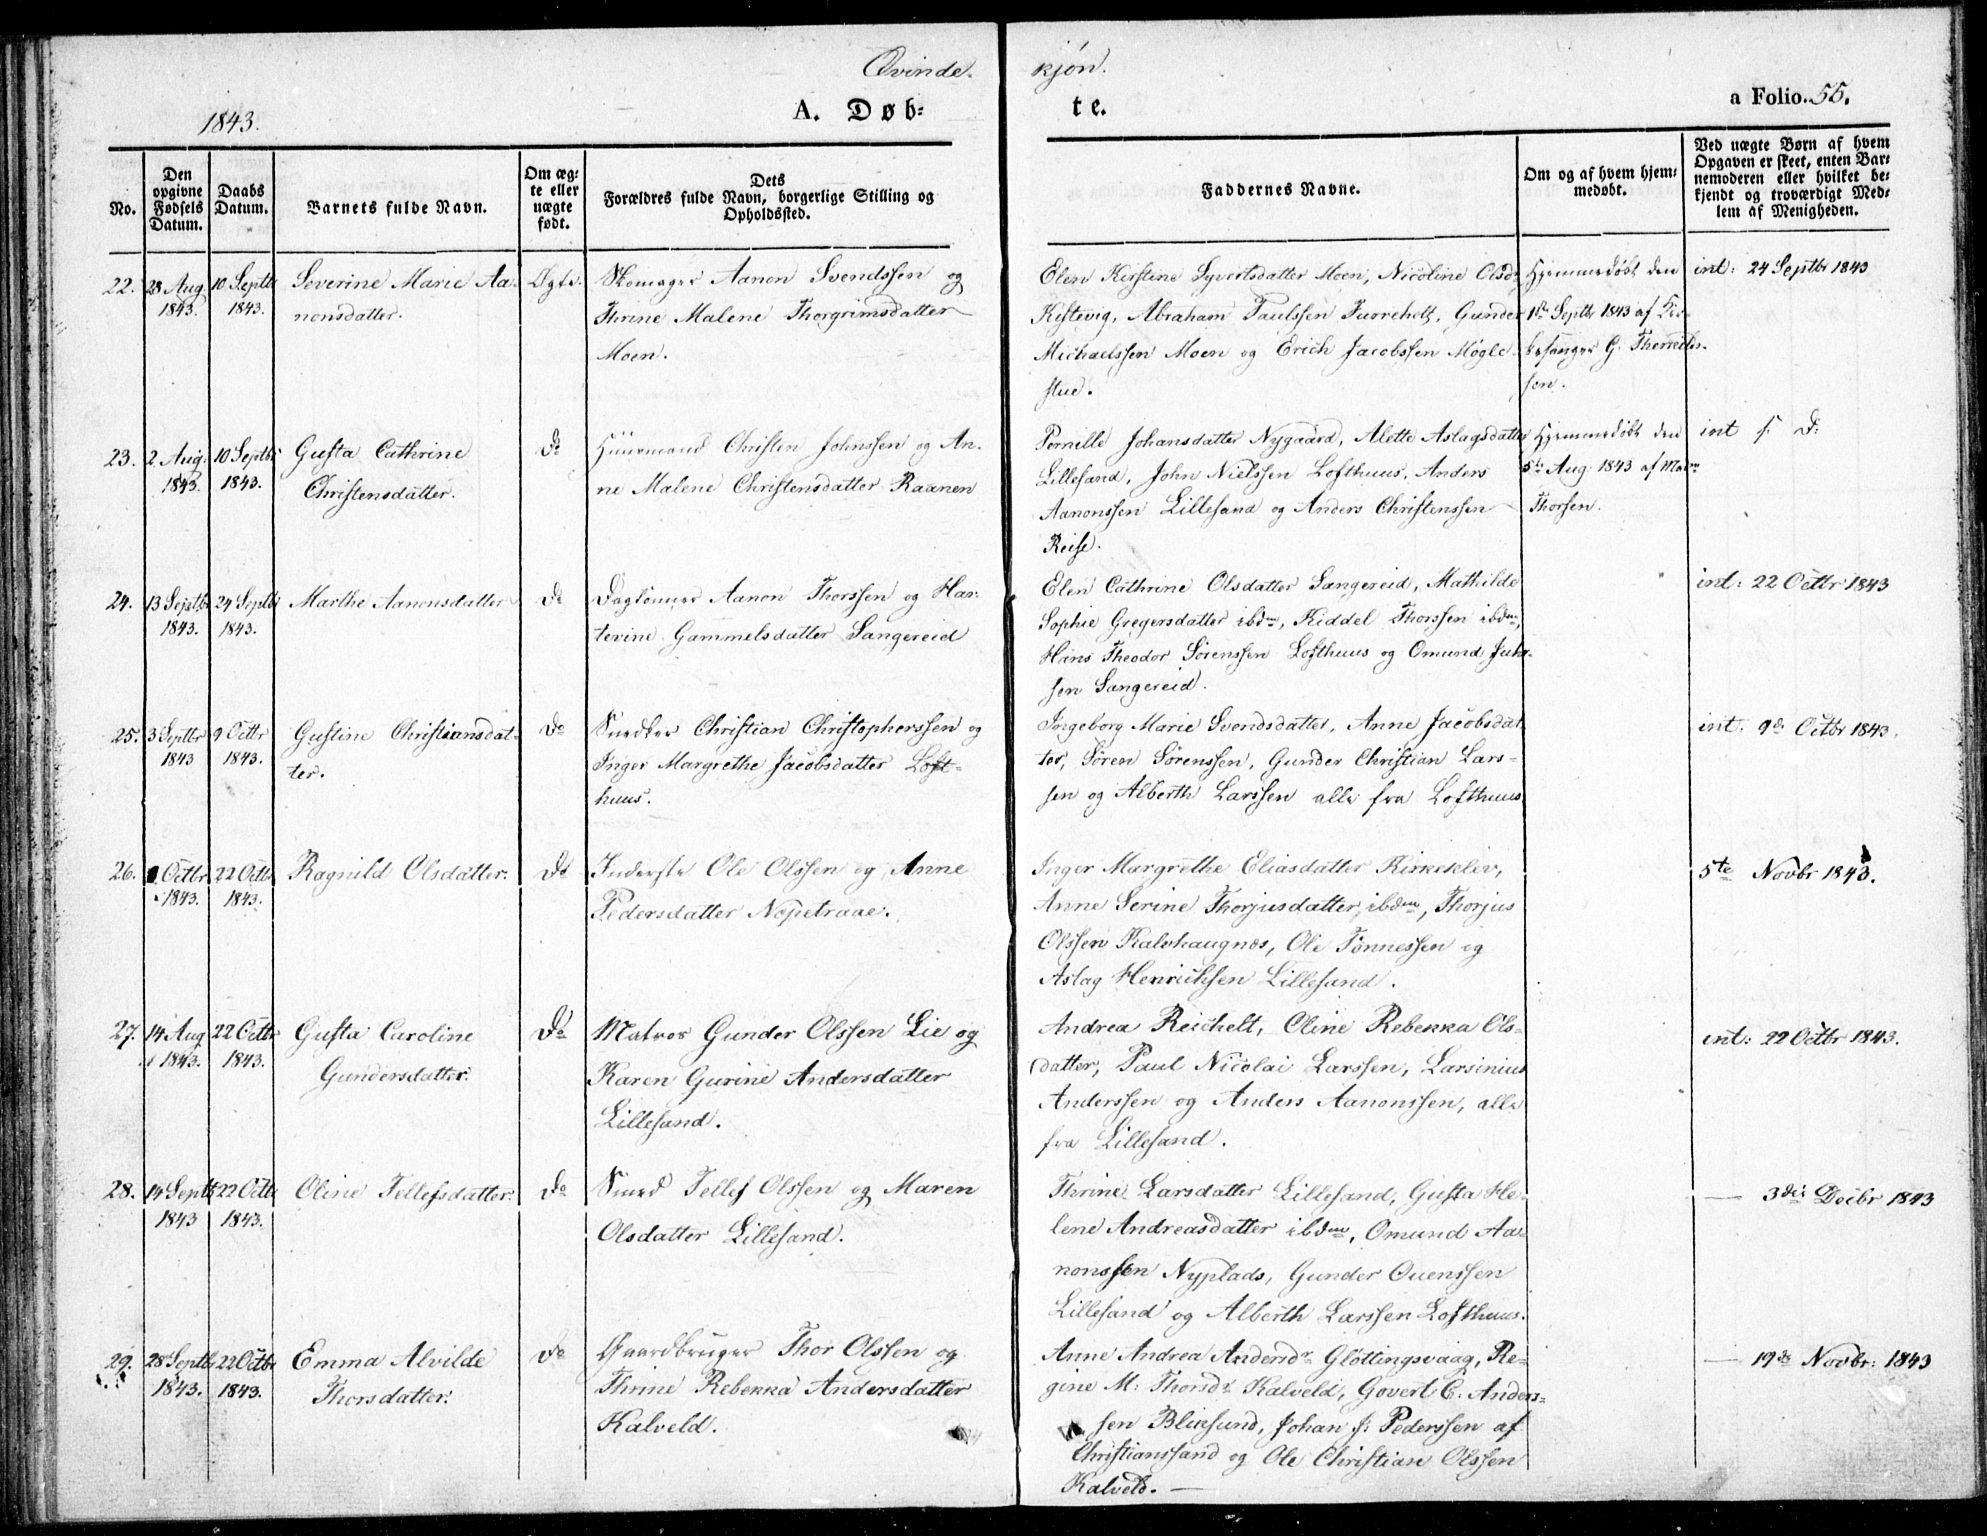 Qvinde-
kjön.
1843.
A. Døb-
te.
a Folio. 55.
No.
Den opgivne Fødsels Datum.
Daabs Datum.
Barnets fulde Navn.
Om ægte eller uægte født.
Dets Forældres fulde Navn, borgerlige Stilling og Opholdssted.
Faddernes Navne.
Om og af hvem hjemmedøbt.
Ved uægte Børn af hvem Opgaven er skeet, enten Barnemoderen eller hvilket bekjendt og troværdigt Medlem af Menigheden.
22. 28 Aug 10 Septbr Severine Marie Aa- Ægte. Skomager Aanon Svendssen og
1843. 1843. nonsdatter. Thrine Malene Thorgrimsdatter
Moen.
Elen Kirstine Syvertsdatter Moen, Nicoline Olsdr Hjemmedøbt den int: 24 Septbr 1843
Kistevig, Abraham Paulssen Furreheit, Gunder 1ste Septbr 1843 af Kir-
Michaelssen Moen og Erich Jacobssen Møgle- kesanger G. Therkels-
stue. sen.
23. 2 Aug: 10 Septbr Gusta Cathrine Do Huusmand Christen Johnssen og An-
1843. 1843. Christensdatter. ne Malene Christensdatter Raanen
Pernille Johansdatter Nygaard, Alette Aslagsdatter Hjemmedøbt den int s. D:
Lillesand, John Nielssen Lofthuus, Anders 5te Aug. 1843 af
Aanonssen Lillesand og Anders Christenssen Thorsen.
Reise.
24. 13 Septbr 24 Septbr Marthe Aanonsdatter Do Daglønner Aanon Thorssen og Has-
1843. 1843. terine Gammelsdatter Sangereid
Elen Cathrine Olsdatter Sangereid, Mathilde int: 22 Octbr 1843
Sophie Gregersdatter ibdm, Kiddel Thorssen ibdm,
Hans Theodor Sørenssen Lofthuus og Omund
sen Sangereid.
25. 3 Septbr 9 Octbr Gustine Christiansdat- Do Snedker Christian Christopherssen og
1843 1843. ter. Inger Margrethe Jacobsdatter Loft-
huus.
Ingeborg Marie Svendsdatter, Anne Jacobsdat- int. 9de Octbr 1843.
ter, Søren Sørenssen, Gunder Christian Lars-
sen og Alberth Larssen alle fra Lofthuus
26. Octbr 22 Octbr Ragnild Olsdatter. Do Inderste Ole Olssen og Anne
1843. 1843. Pedersdatter Nepetraae.
Inger Margrethe Eliasdatter Kirkeklev, 5te Novbr 1843.
Anne Serine Thorjusdatter ibdm, Thorjus
Olssen Kalvhaugnes, Ole Tønnessen og
Aslag Henrichsen Lillesand.
27. 14 Aug 22 Octbr Gusta Caroline Do Matros Gunder Olssen Lie og
1843. 1843. Gundersdatter. Karen Gurine Andersdatter
Lillesand.
Andrea Reichelt, Oline Rebekka Ols- int: 22 Octbr 1843.
datter, Paul Nicolai Larssen, Larsinius
Anderssen og Anders Aanonssen, alle
fra Lillesand.
28. 14 Septbr 22 Octbr Oline Tellefsdatter. Do Smed Tellef Olssen og Maren
1843 1843. Olsdatter Lillesand.
Thrine Larsdatter Lillesand, Gusta He- — 3die Decbr 1843
lene Andreasdatter ibdm, Omund Aa-
nonssen Nyplads, Gunder Ouenssen
Lillesand og Alberth Larssen Lofthuus.
29. 28 Septbr 22 Octbr Emma Alvilde Do Gaardbruger Thor Olssen og
1843. 1843. Thorsdatter. Thrine Rebekka Andersdatter
Kalveld.
Anne Andrea Andersdr Glöttingsvaag, Re- — 19de Novbr: 1843
gine M: Thorsdr Kalveld, Govert C. Anders-
sen Blixsund, Johan J: Pederssen af
Christianssand og Ole Christian Olssen
Kalveld. —